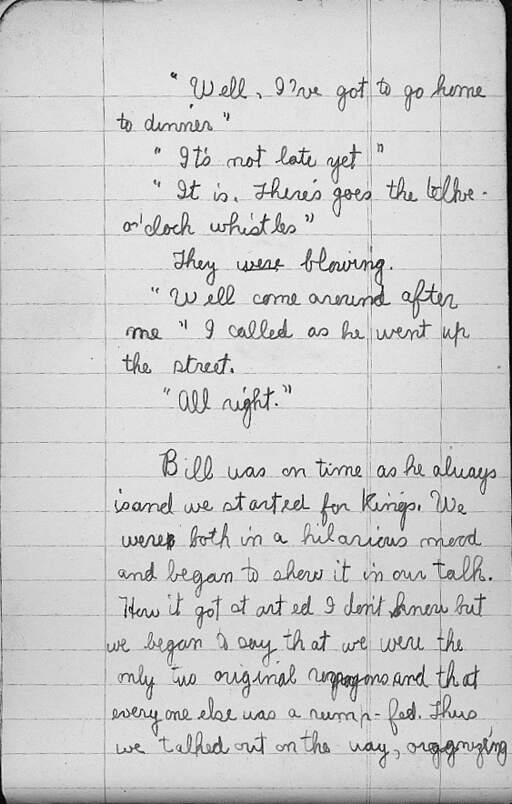 "Well, I've got to go home
to dinner"
"It's not late yet"
"It is. There's goes the
o'clock whistles"
They were blowing.
"Well come around after
me" I called as he went up
the street.
"All right."
Bill was on time as he always
is and we started for Kings. We
were both in a hilarious mood
and began to show it in our talk.
How it got started I don't know but
we began to say that we were the
only two original and that
everyone else was a rump-fed. Thus
we talked out on the way,